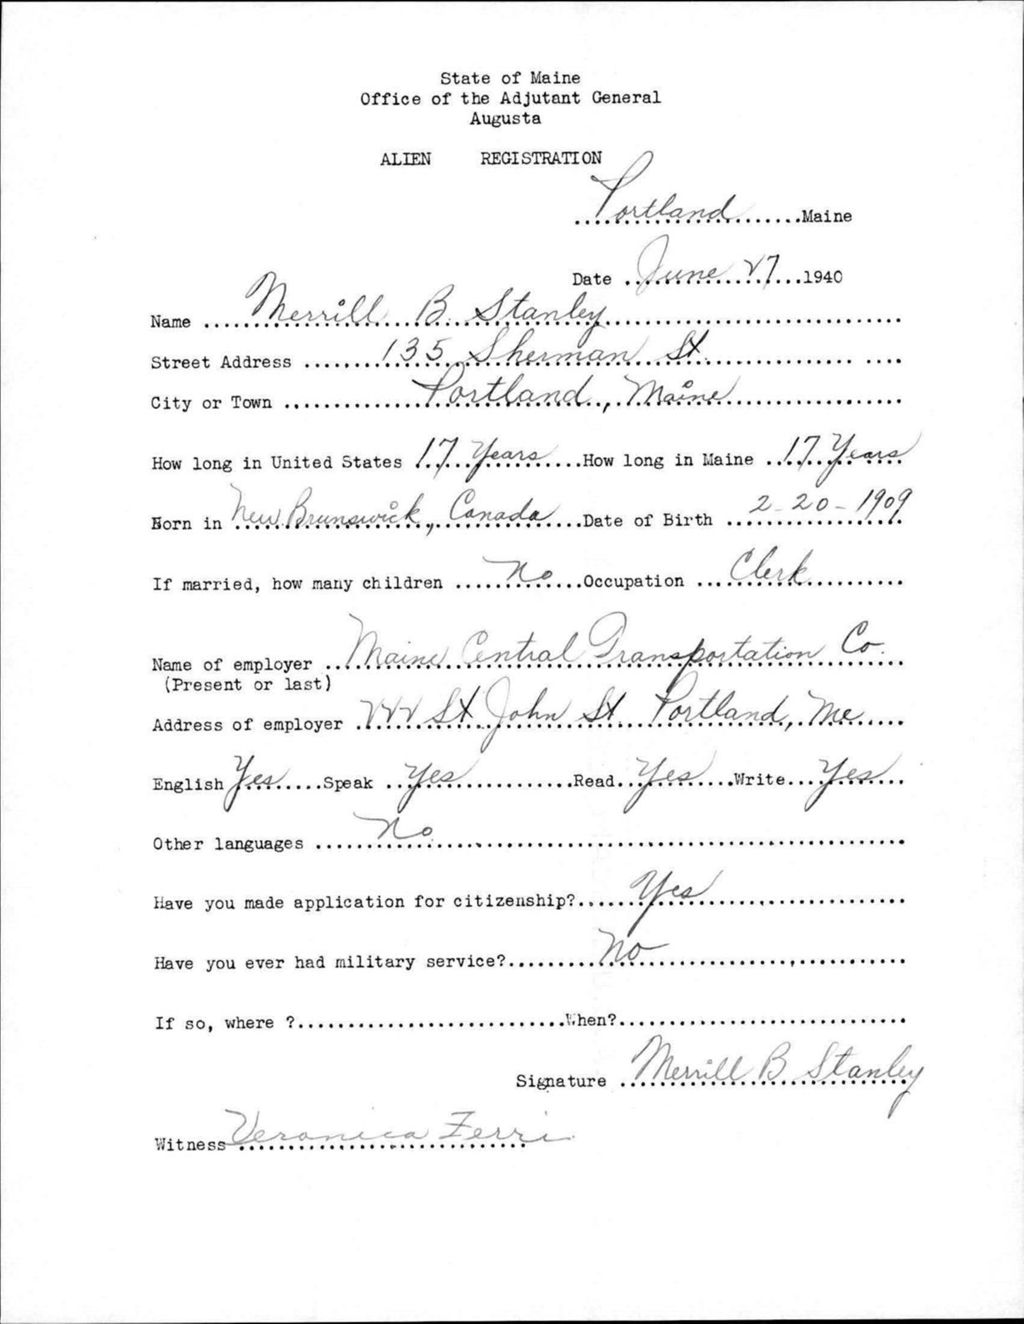 State of Maine
Office of the Adjutant General
Augusta
ALIEN REGISTRATION
Portland Maine
Date June 27 1940
Name Merrill B. Stanley
Street Address 135 Sherman St.
City or Town Portland, Maine
How long in United States 17 Years How long in Maine 17 Years
Born in New Brunswick, Canada Date of Birth 2-20-1909
If married, how many children No Occupation Clerk
Name of employer Maine Central Transportation Co.
(Present or last)
Address of employer 222 St John St. Portland, Me
English Yes Speak Yes Read Yes Write Yes
Other languages No
Have you made application for citizenship? Yes
Have you ever had military service? No
If so, where ? When?
Signature Merrill B Stanley
Witness Veronica Ferri